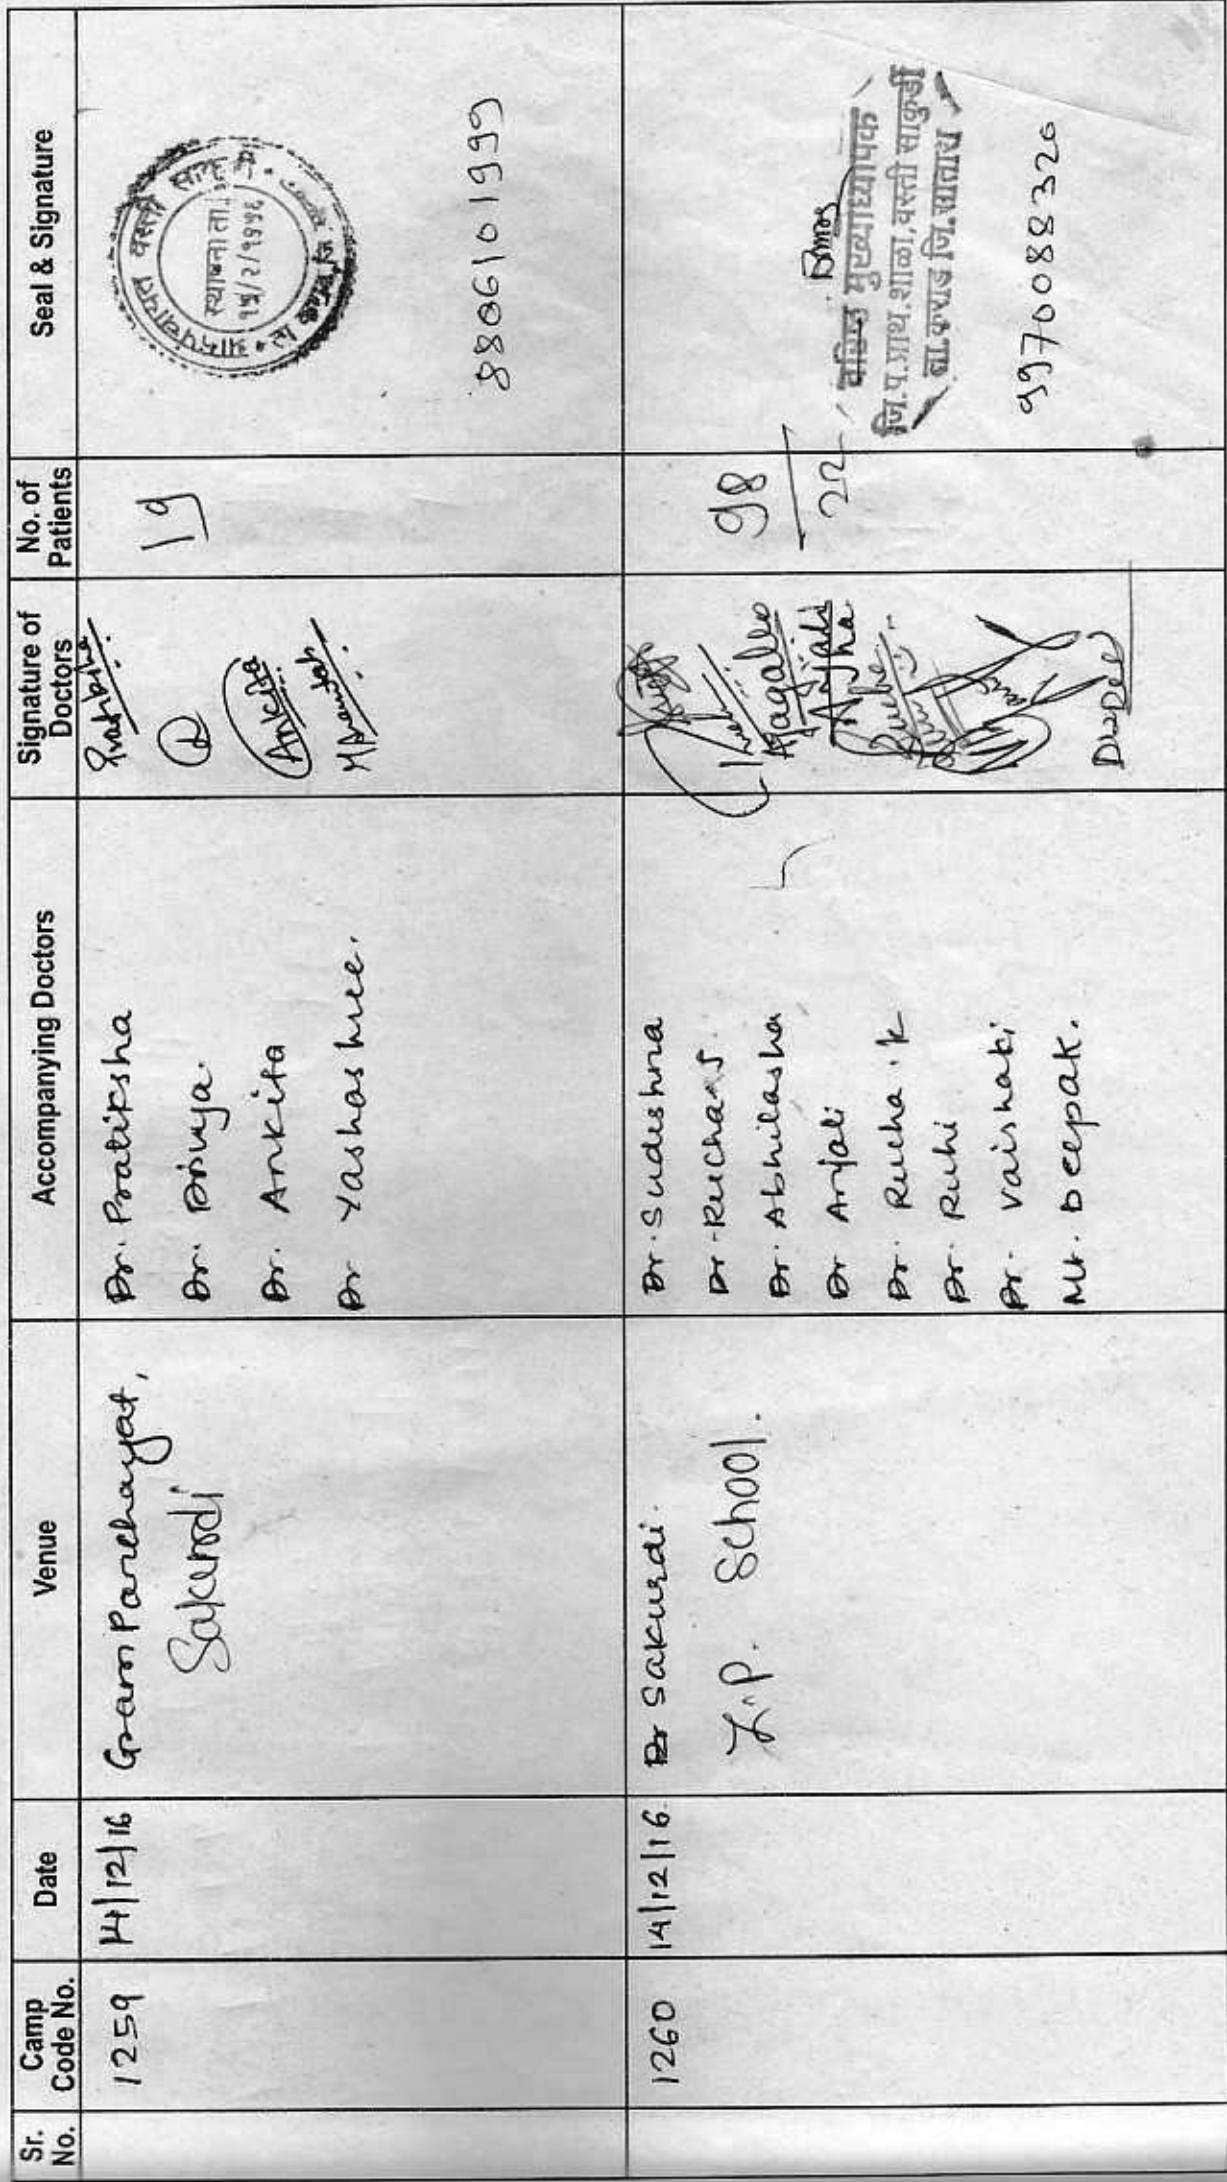 Sr. No.
Camp Code No.
Date
Venue
Accompanying Doctors
Signature of Doctors
No. of Patients
Seal & Signature
1259
14/12/16
Gram Panchayat,
Sakurdi
Dr. Pratiksha
Dr. Divya.
Dr. Ankita
Dr Yashashree.
Pratiksha
Ankita
19
स्थापना ता.
8806101999
1260
14/12/16.
Dr Sakurdi.
Z.P. School.
Dr. Sudeshna
Dr. Rucha S.
Dr. Abhilasha
Dr Anjali
Dr. Rucha.K
Dr. Ruhi
Dr. Vaishaki
Mr. Deepak.
Anjali
98
22
मुख्याध्यापक
ता. कराड जि. सातारा
9970088320